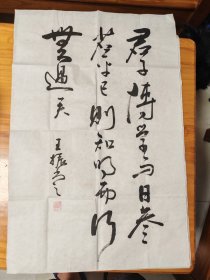 君子博学而日参
省乎己则知明而行
无过矣
王振